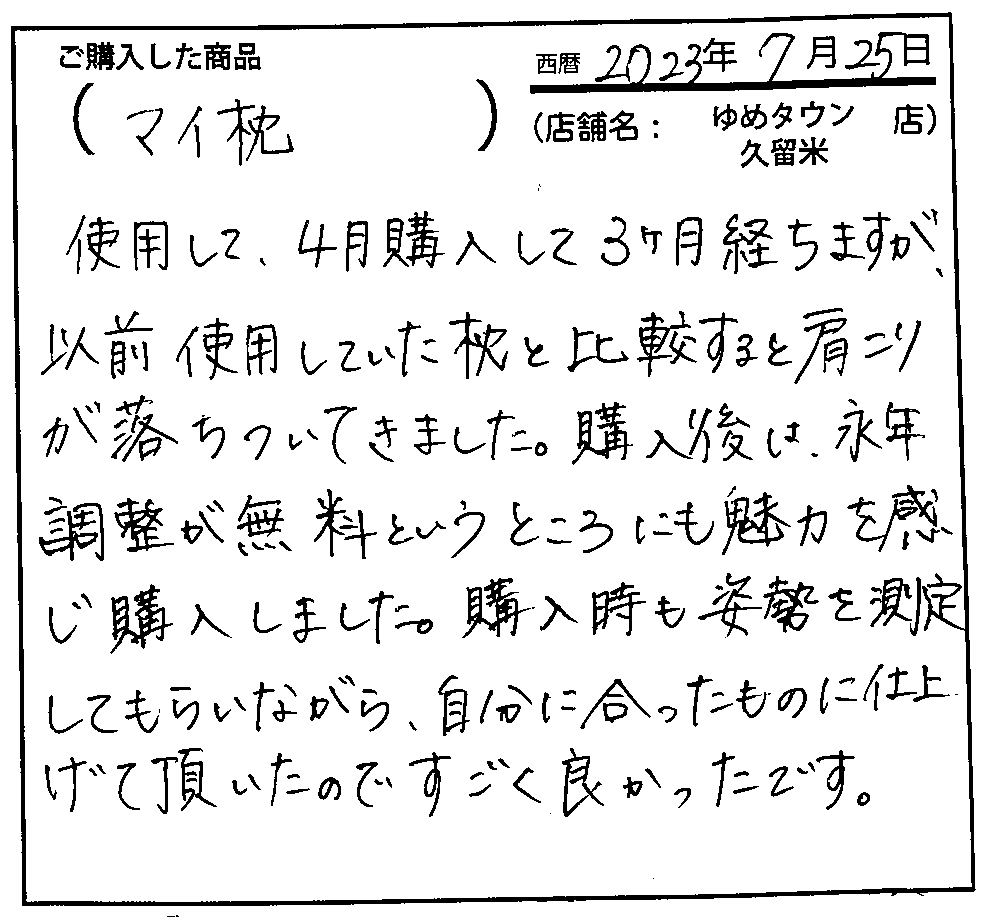 ご購入した商品
西暦 2023年 7月25日
(マイ枕)
(店舗名： ゆめタウン 久留米 店)
使用して、4月購入して3ヶ月経ちますが、
以前使用していた枕と比較すると肩こり
が落ちついてきました。購入後は、永年
調整が無料というところにも魅力を感
じ購入しました。購入時も姿勢を測定
してもらいながら、自分に合ったものに仕上
げて頂いたのですごく良かったです。